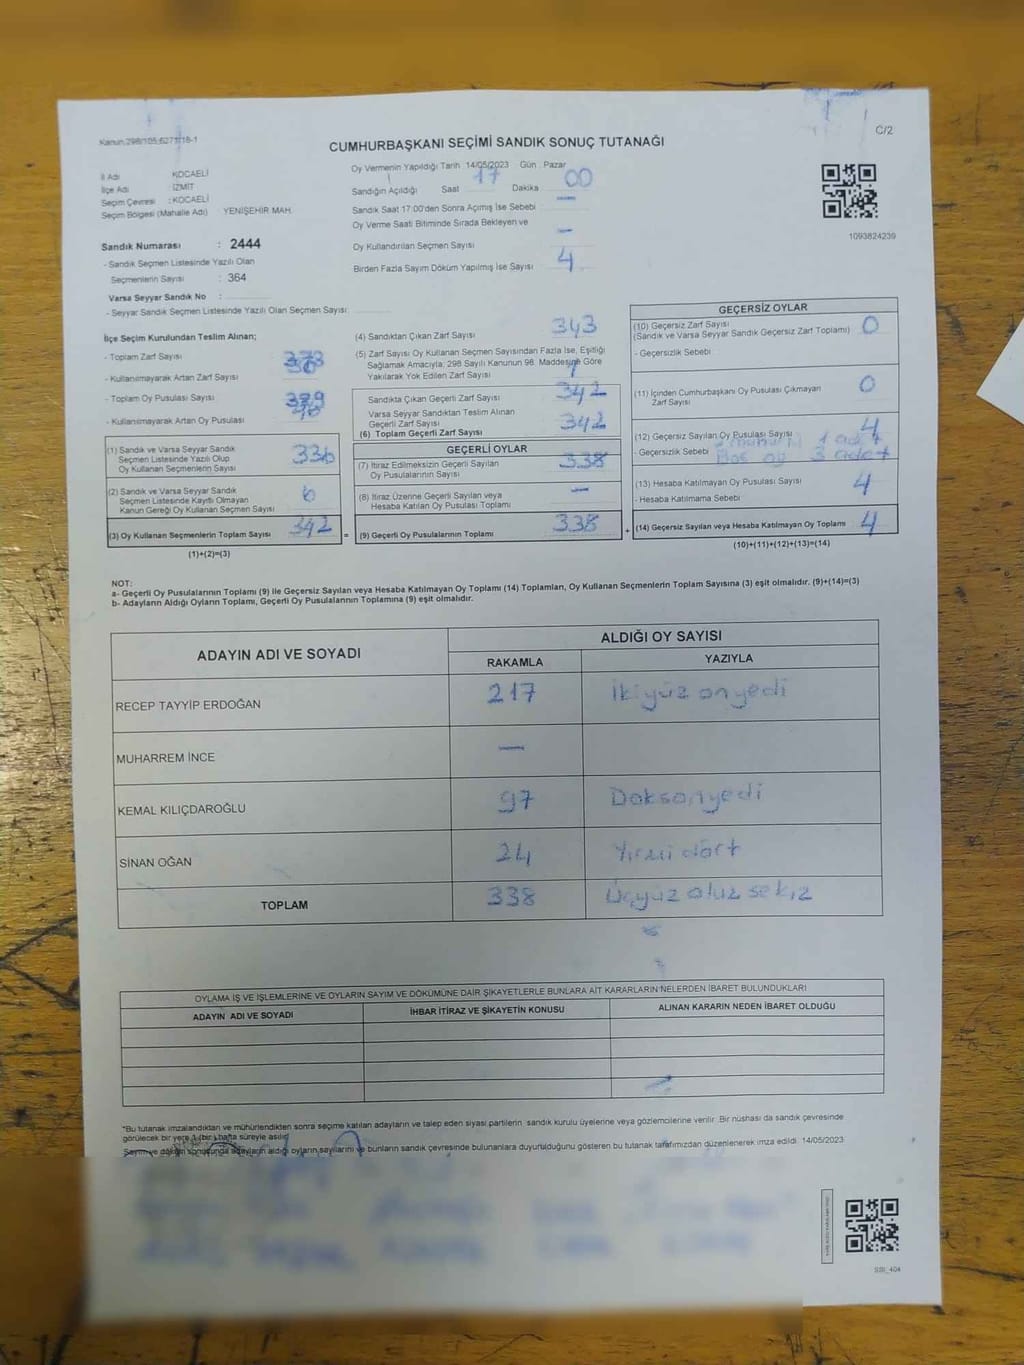 Kanun 298/105;6271/18-1
C/2
CUMHURBAŞKANI SEÇİMİ SANDIK SONUÇ TUTANAĞI
İl Adı KOCAELİ
İlçe Adı : İZMİT
Seçim Çevresi : KOCAELİ
Seçim Bölgesi (Mahalle Adı) YENİŞEHİR MAH.
Oy Vermenin Yapıldığı Tarih 14/05/2023 Gün : Pazar
Sandığın Açıldığı Saat 17 Dakika 00
Sandık Saat 17:00'den Sonra Açımış İse Sebebi —
Oy Verme Saati Bitiminde Sırada Bekleyen ve
Oy Kullandırılan Seçmen Sayısı —
Birden Fazla Sayım Döküm Yapılmış İse Sayısı 4
1093824239
Sandık Numarası : 2444
- Sandık Seçmen Listesinde Yazılı Olan
Seçmenlerin Sayısı : 364
Varsa Seyyar Sandık No :
- Seyyar Sandık Seçmen Listesinde Yazılı Olan Seçmen Sayısı:
İlçe Seçim Kurulundan Teslim Alınan;
- Toplam Zarf Sayısı
- Kullanılmayarak Artan Zarf Sayısı
- Toplam Oy Pusulası Sayısı
- Kullanılmayarak Artan Oy Pusulası
(1) Sandık ve Varsa Seyyar Sandık
Seçmen Listesinde Yazılı Olup
Oy Kullanan Seçmenlerin Sayısı 336
(2) Sandık ve Varsa Seyyar Sandık
Seçmen Listesinde Kayıtlı Olmayan
Kanun Gereği Oy Kullanan Seçmen Sayısı 6
(3) Oy Kullanan Seçmenlerin Toplam Sayısı 342 =
(1)+(2)=(3)
(4) Sandıktan Çıkan Zarf Sayısı 343
(5) Zarf Sayısı Oy Kullanan Seçmen Sayısından Fazla İse, Eşitliği
Sağlamak Amacıyla; 298 Sayılı Kanunun 98. Maddesine Göre
Yakılarak Yok Edilen Zarf Sayısı 1
Sandıkta Çıkan Geçerli Zarf Sayısı 342
Varsa Seyyar Sandıktan Teslim Alınan
Geçerli Zarf Sayısı
(6) Toplam Geçerli Zarf Sayısı 342
GEÇERLİ OYLAR
(7) İtiraz Edilmeksizin Geçerli Sayılan
Oy Pusulalarının Sayısı 338
(8) İtiraz Üzerine Geçerli Sayılan veya
Hesaba Katılan Oy Pusulası Toplamı —
(9) Geçerli Oy Pusulalarının Toplamı 338 +
GEÇERSİZ OYLAR
(10) Geçersiz Zarf Sayısı
(Sandık ve Varsa Seyyar Sandık Geçersiz Zarf Toplamı) 0
- Geçersizlik Sebebi
(11) İçinden Cumhurbaşkanı Oy Pusulası Çıkmayan
Zarf Sayısı 0
(12) Geçersiz Sayılan Oy Pusulası Sayısı 4
- Geçersizlik Sebebi 1 adet
Boş oy 3 adet
(13) Hesaba Katılmayan Oy Pusulası Sayısı 4
- Hesaba Katılmama Sebebi
(14) Geçersiz Sayılan veya Hesaba Katılmayan Oy Toplamı 4
(10)+(11)+(12)+(13)=(14)
NOT:
a- Geçerli Oy Pusulalarının Toplamı (9) ile Geçersiz Sayılan veya Hesaba Katılmayan Oy Toplamı (14) Toplamları, Oy Kullanan Seçmenlerin Toplam Sayısına (3) eşit olmalıdır. (9)+(14)=(3)
b- Adayların Aldığı Oyların Toplamı, Geçerli Oy Pusulalarının Toplamına (9) eşit olmalıdır.
ADAYIN ADI VE SOYADI
ALDIĞI OY SAYISI
RAKAMLA YAZIYLA
RECEP TAYYİP ERDOĞAN 217 ikiyüz onyedi
MUHARREM İNCE —
KEMAL KILIÇDAROĞLU 97 Doksanyedi
SİNAN OĞAN 24 Yirmi dört
TOPLAM 338 Üçyüz otuz sekiz
OYLAMA İŞ VE İŞLEMLERİNE VE OYLARIN SAYIM VE DÖKÜMÜNE DAİR ŞİKAYETLERLE BUNLARA AİT KARARLARIN NELERDEN İBARET BULUNDUKLARI
ADAYIN ADI VE SOYADI İHBAR İTİRAZ VE ŞİKAYETİN KONUSU ALINAN KARARIN NEDEN İBARET OLDUĞU
*Bu tutanak imzalandıktan ve mühürlendikten sonra seçime katılan adayların ve talep eden siyasi partilerin sandık kurulu üyelerine veya gözlemcilerine verilir. Bir nüshası da sandık çevresinde
görülecek bir yere 1 (bir) hafta süreyle asılır.
Sayım ve döküm sonucunda adayların aldığı oyların sayılarını ve bunların sandık çevresinde bulunanlara duyurulduğunu gösteren bu tutanak tarafımızdan düzenlenerek imza edildi. 14/05/2023
SSI_404